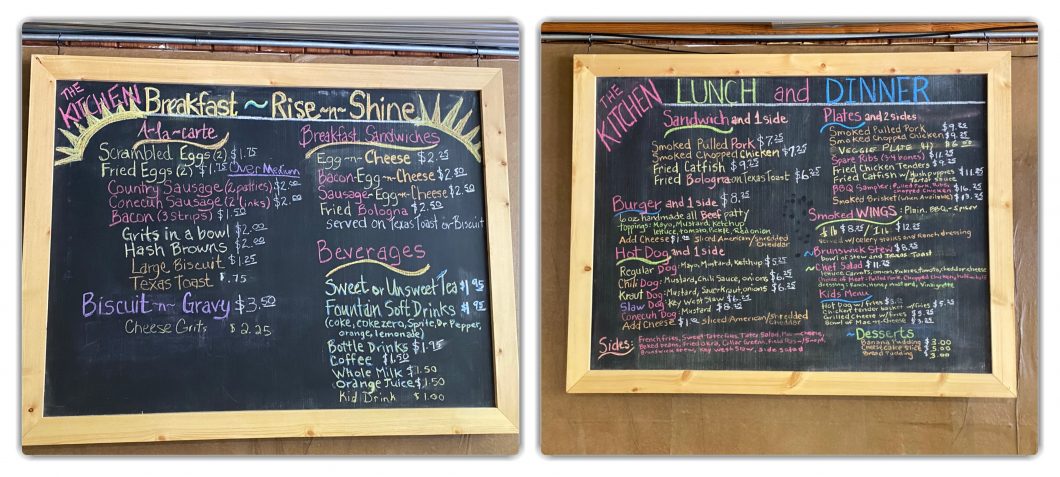 THE KITCHEN
Breakfast ~ Rise~n~ Shine
A-la-carte
Scrambled Eggs (2) $1.75
Fried Eggs (2) $1.75 Over Medium
Country Sausage (2 patties) $2.00
Conecuh Sausage (2 links) $2.00
Bacon (3 Strips) $1.50
Grits in a bowl $2.00
Hash Browns $2.00
Large Biscuit $1.25
Texas Toast $.75
Biscuit ~n~ Gravy $3.50
Cheese Grits $2.25
Breakfast Sandwiches
Egg~n~Cheese $2.25
Bacon-Egg~n~Cheese $2.50
Sausage-Egg~n~Cheese $2.50
Fried Bologna $2.50
served on Texas Toast or Biscuit
Beverages
Sweet or Unsweet Tea $1.95
Fountain Soft Drinks
(coke, coke zero, Sprite, Dr Pepper,
orange, lemonade)
Bottle Drinks $1.75
Coffee $1.50
Whole Milk $1.50
Orange Juice $1.50
Kid Drink $1.00
THE KITCHEN
LUNCH and DINNER
Sandwich and 1 side
Smoked Pulled Pork $7.25
Smoked Chopped Chicken $7.25
Fried Catfish $9.25
Fried Bologna on Texas Toast $6.25
Burger and 1 side $8.25
6 oz handmade all Beef patty
Toppings: Mayo, Mustard, Ketchup
lettuce, tomato, Pickle, Red onion
Add Cheese $1.00 sliced American/shredded Cheddar
Hot Dog and 1 side
Regular Dog: Mayo, Mustard, Ketchup $5.25
Chili Dog: Mustard, Chili Sauce, onions $6.25
Kraut Dog: Mustard, Sauerkraut, onions $6.25
Slaw Dog: Key West Slaw $6.25
Conecuh Dog: Mustard $8.25
Add Cheese $1.00 sliced American/shredded Cheddar
Sides:
French fries, Sweet Tater fries, Tater Salad, Mac~n~cheese,
Baked beans, fried okra, Collar Greens,
Brunswick stew, Key West Slaw, side salad
Plates and 2 sides:
Smoked Pulled Pork $9.25
Smoked Chopped Chicken $9.25
Veggie Plate (4) $6.50
Spare Ribs (3-4 bones) $11.25
Fried Chicken Tenders $9.25
Fried Catfish w/ Hushpuppies Tartar Sauce $11.25
BBQ Sampler: Pulled Pork, Ribs, chopped Chicken $16.25
Smoked Brisket (when Available) $13.25
Smoked WINGS: Plain, BBQ, Spicy
½ lb $8.25 / 1 lb $12.25
served w/ celery sticks and Ranch dressing
~Brunswick Stew $8.25
bowl of Stew and Texas Toast
~Chef Salad $11.25
lettuce, carrots, onion, Pickles, tomato, cheddar cheese
choice of Meat: Pulled Pork, Chopped Chicken,
dressing: Ranch, Honey mustard, Vinaigrette
Kids Menu
Hot Dog w/ fries
Chicken tender basket w/ fries $5.25
Grilled Cheese w/ fries $5.25
Bowl of Mac~n~Cheese $3.25
~Desserts
Banana Pudding $3.00
Cheesecake slice $5.00
Bread Pudding $3.00